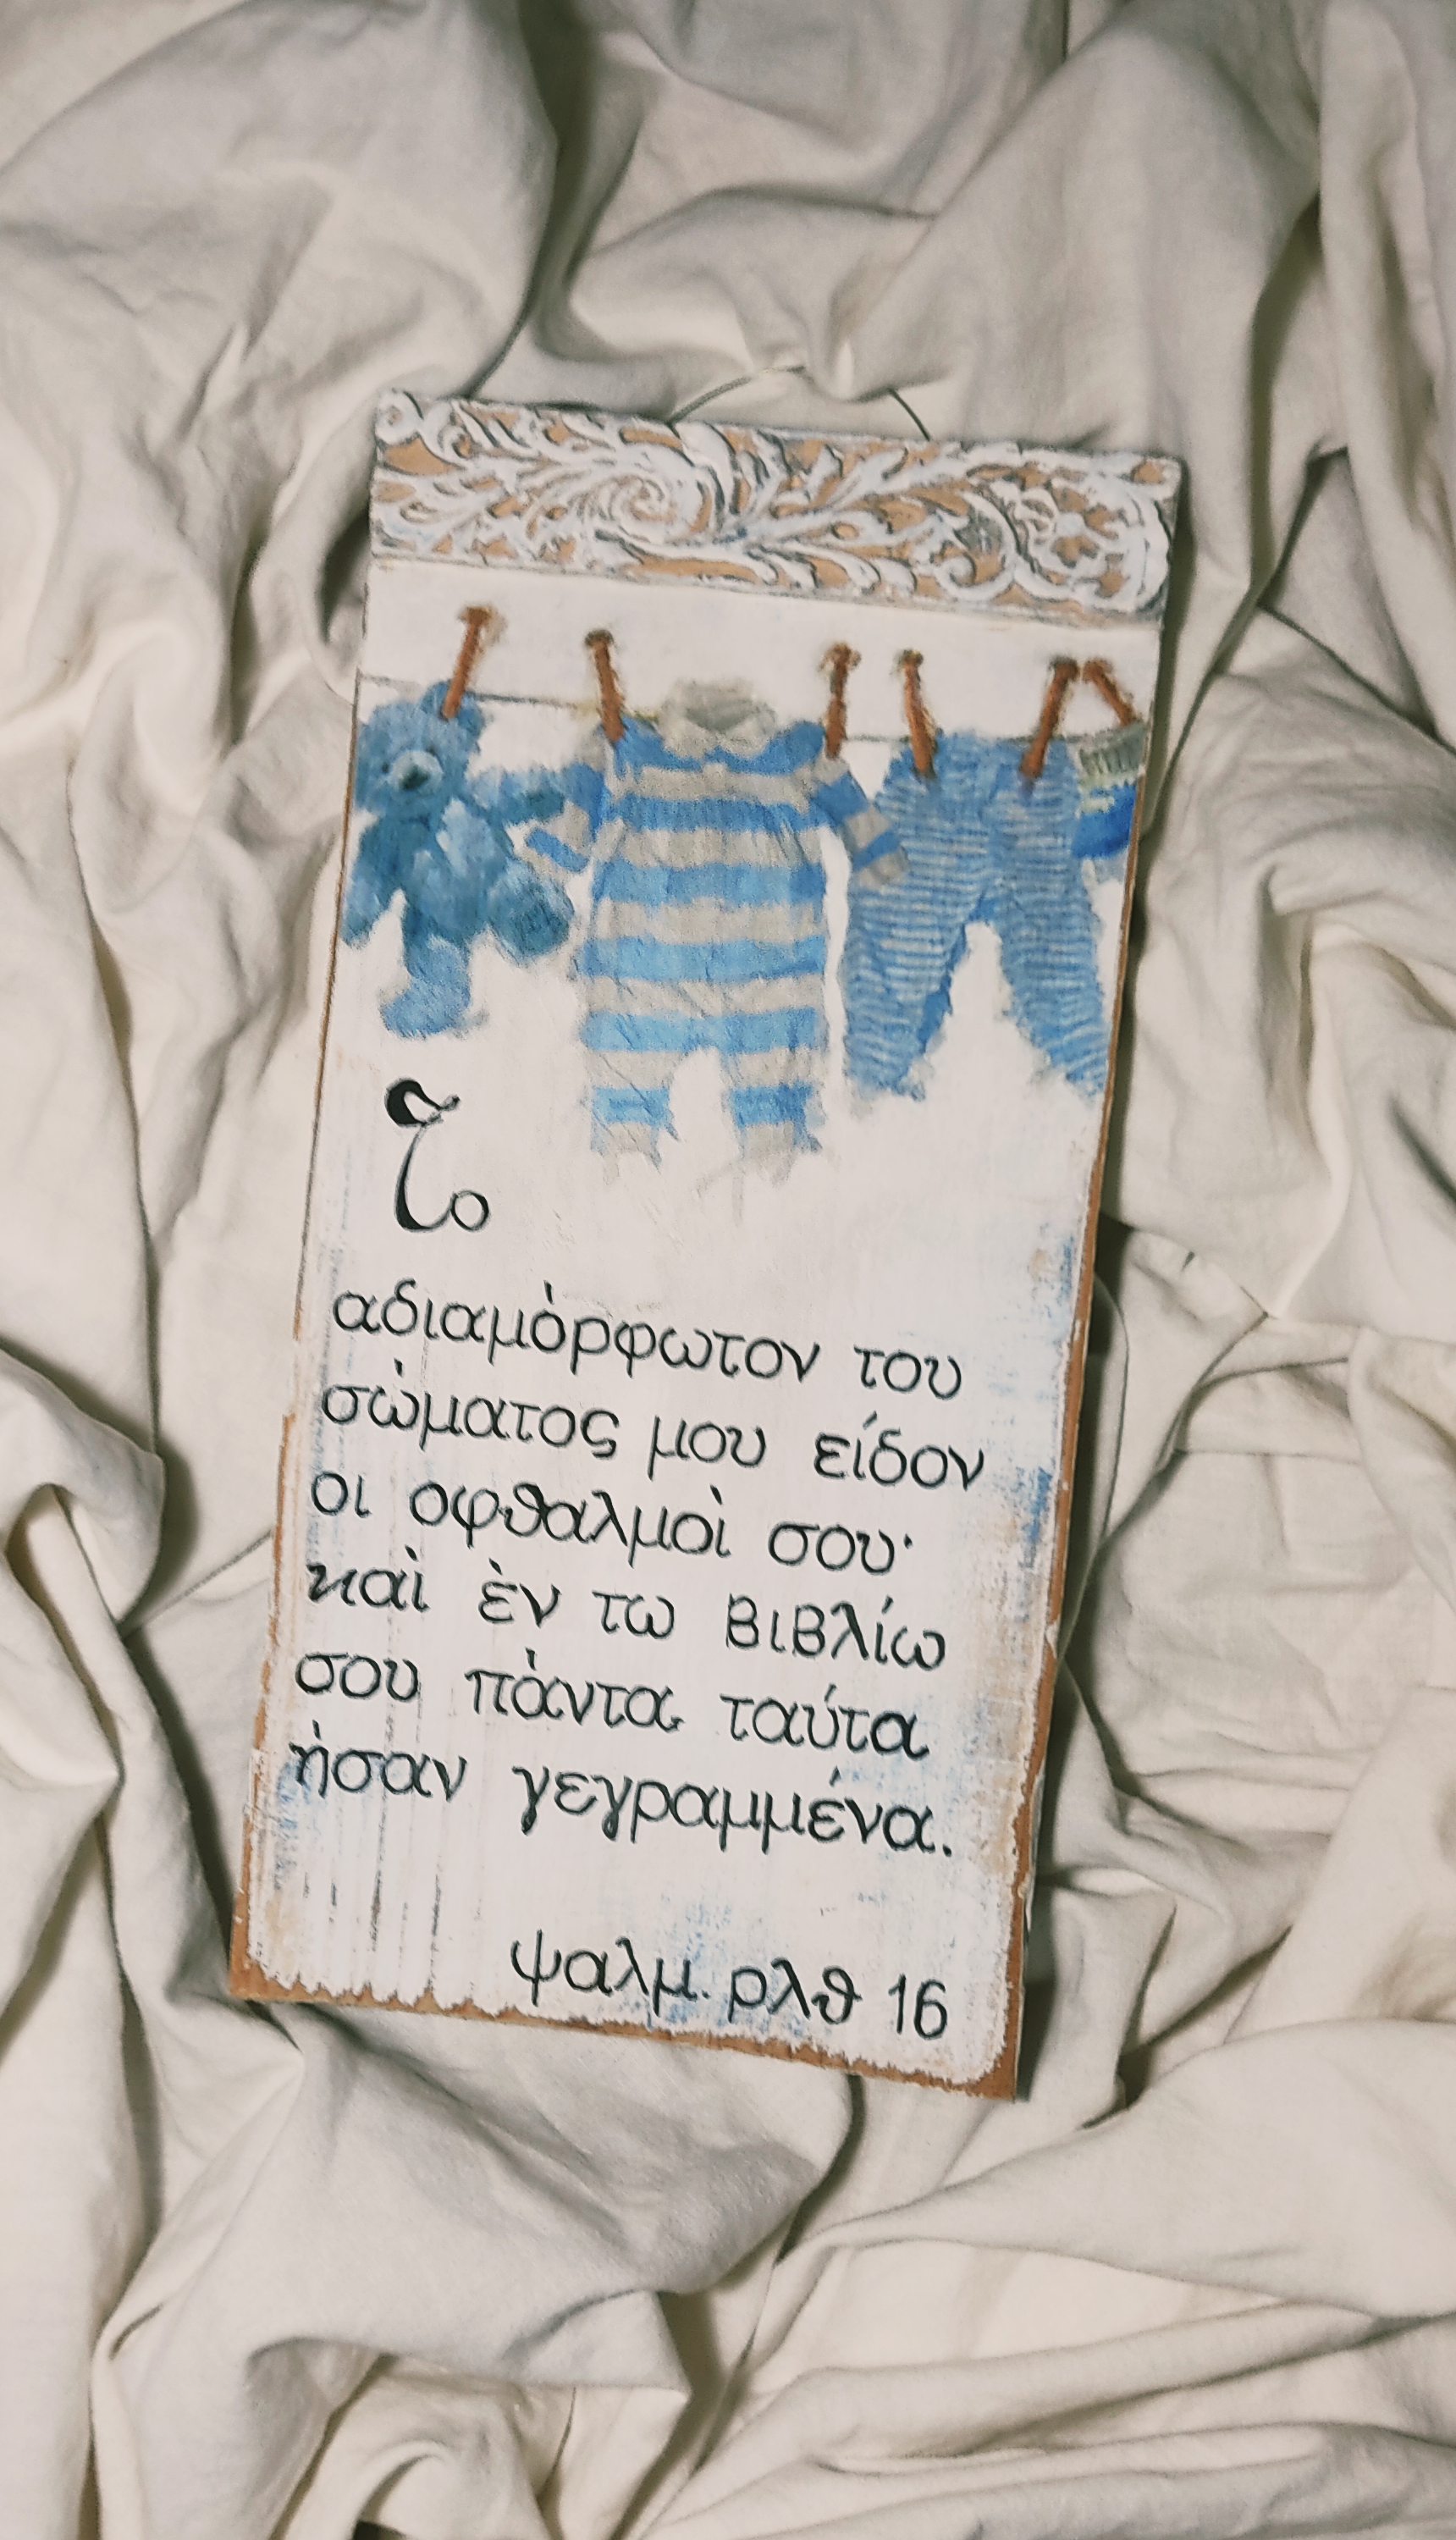 Το
αδιαμὸρφωτον του
σὼματος μου είδον
οι οφθαλμοὶ σου·
καὶ ὲν τω βιβλίω
σου πὰντα ταύτα
ὴσαν γεγραμμένα.
ψαλμ. ρλθ 16